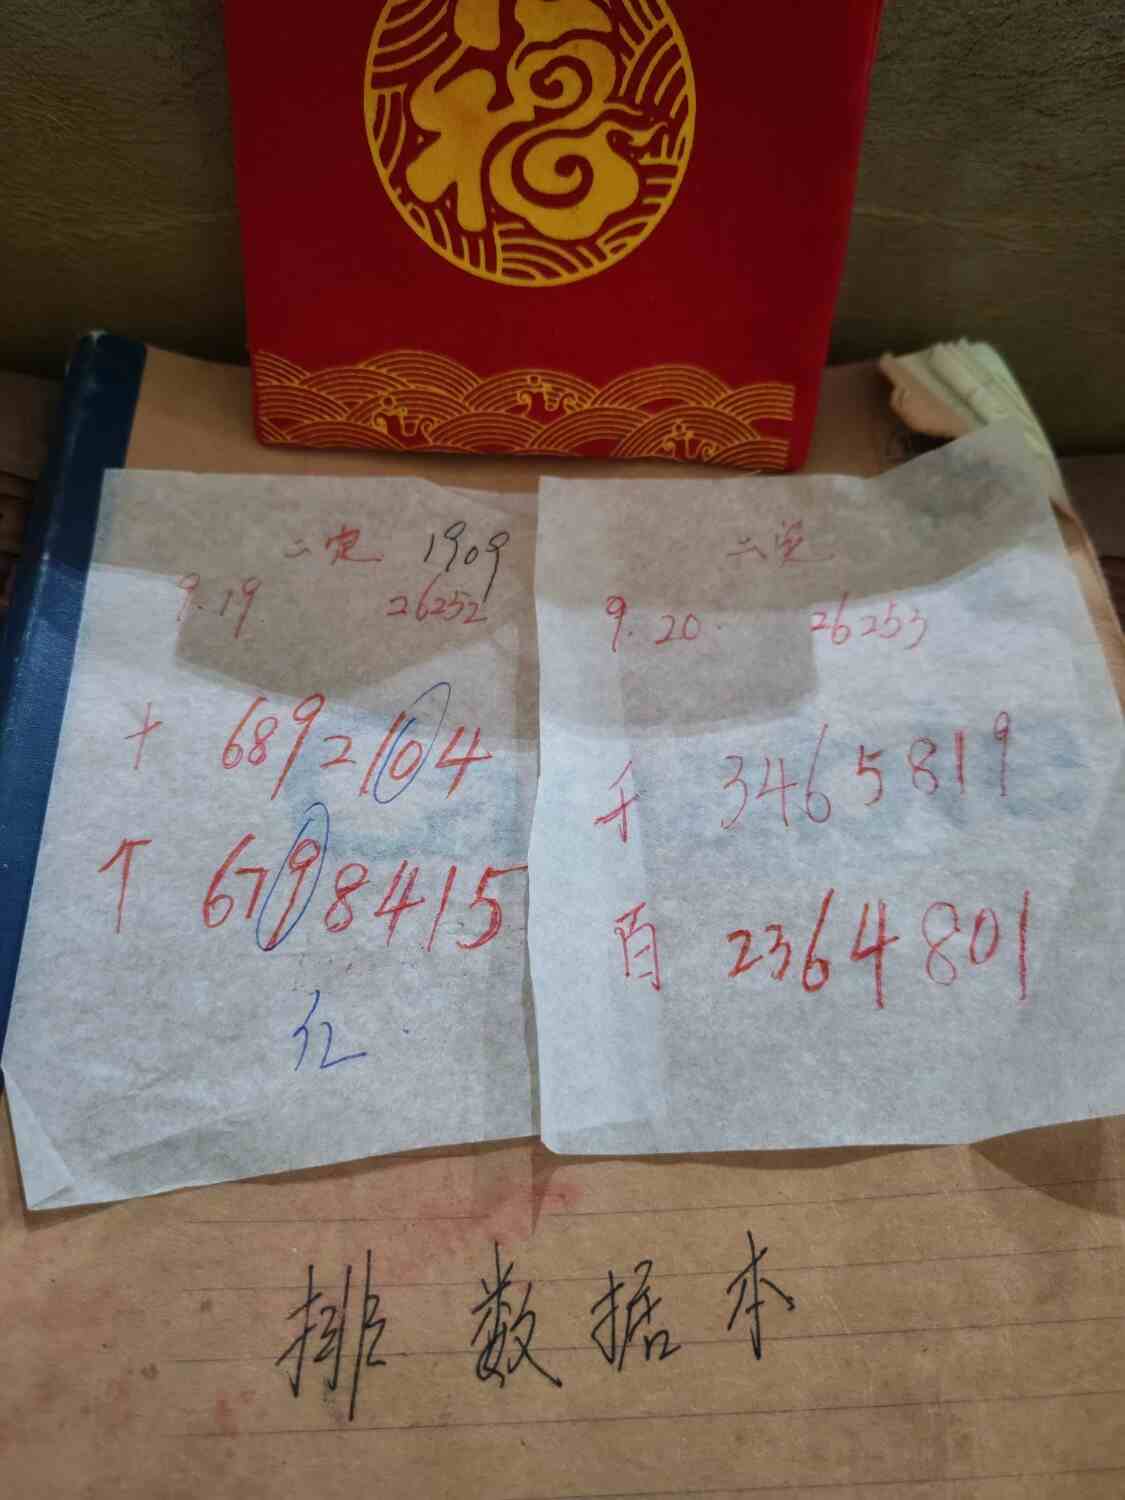 福
二定 1909
9.19 26252
十 6892104
个 6798415
红
二定
9.20. 26253
千 3465819
百 2364801
排数据本